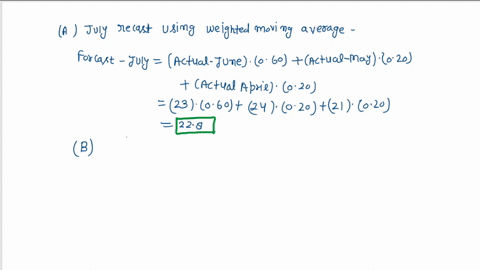 (A) July recast using weighted moving average -
Forcast - July = (Actual-June).(0.60) + (Actual-may).(0.20)
+ (Actual Aprie).(0.20)
= (23).(0.60) + (24).(0.20) + (21).(0.20)
= 22.8
(B)